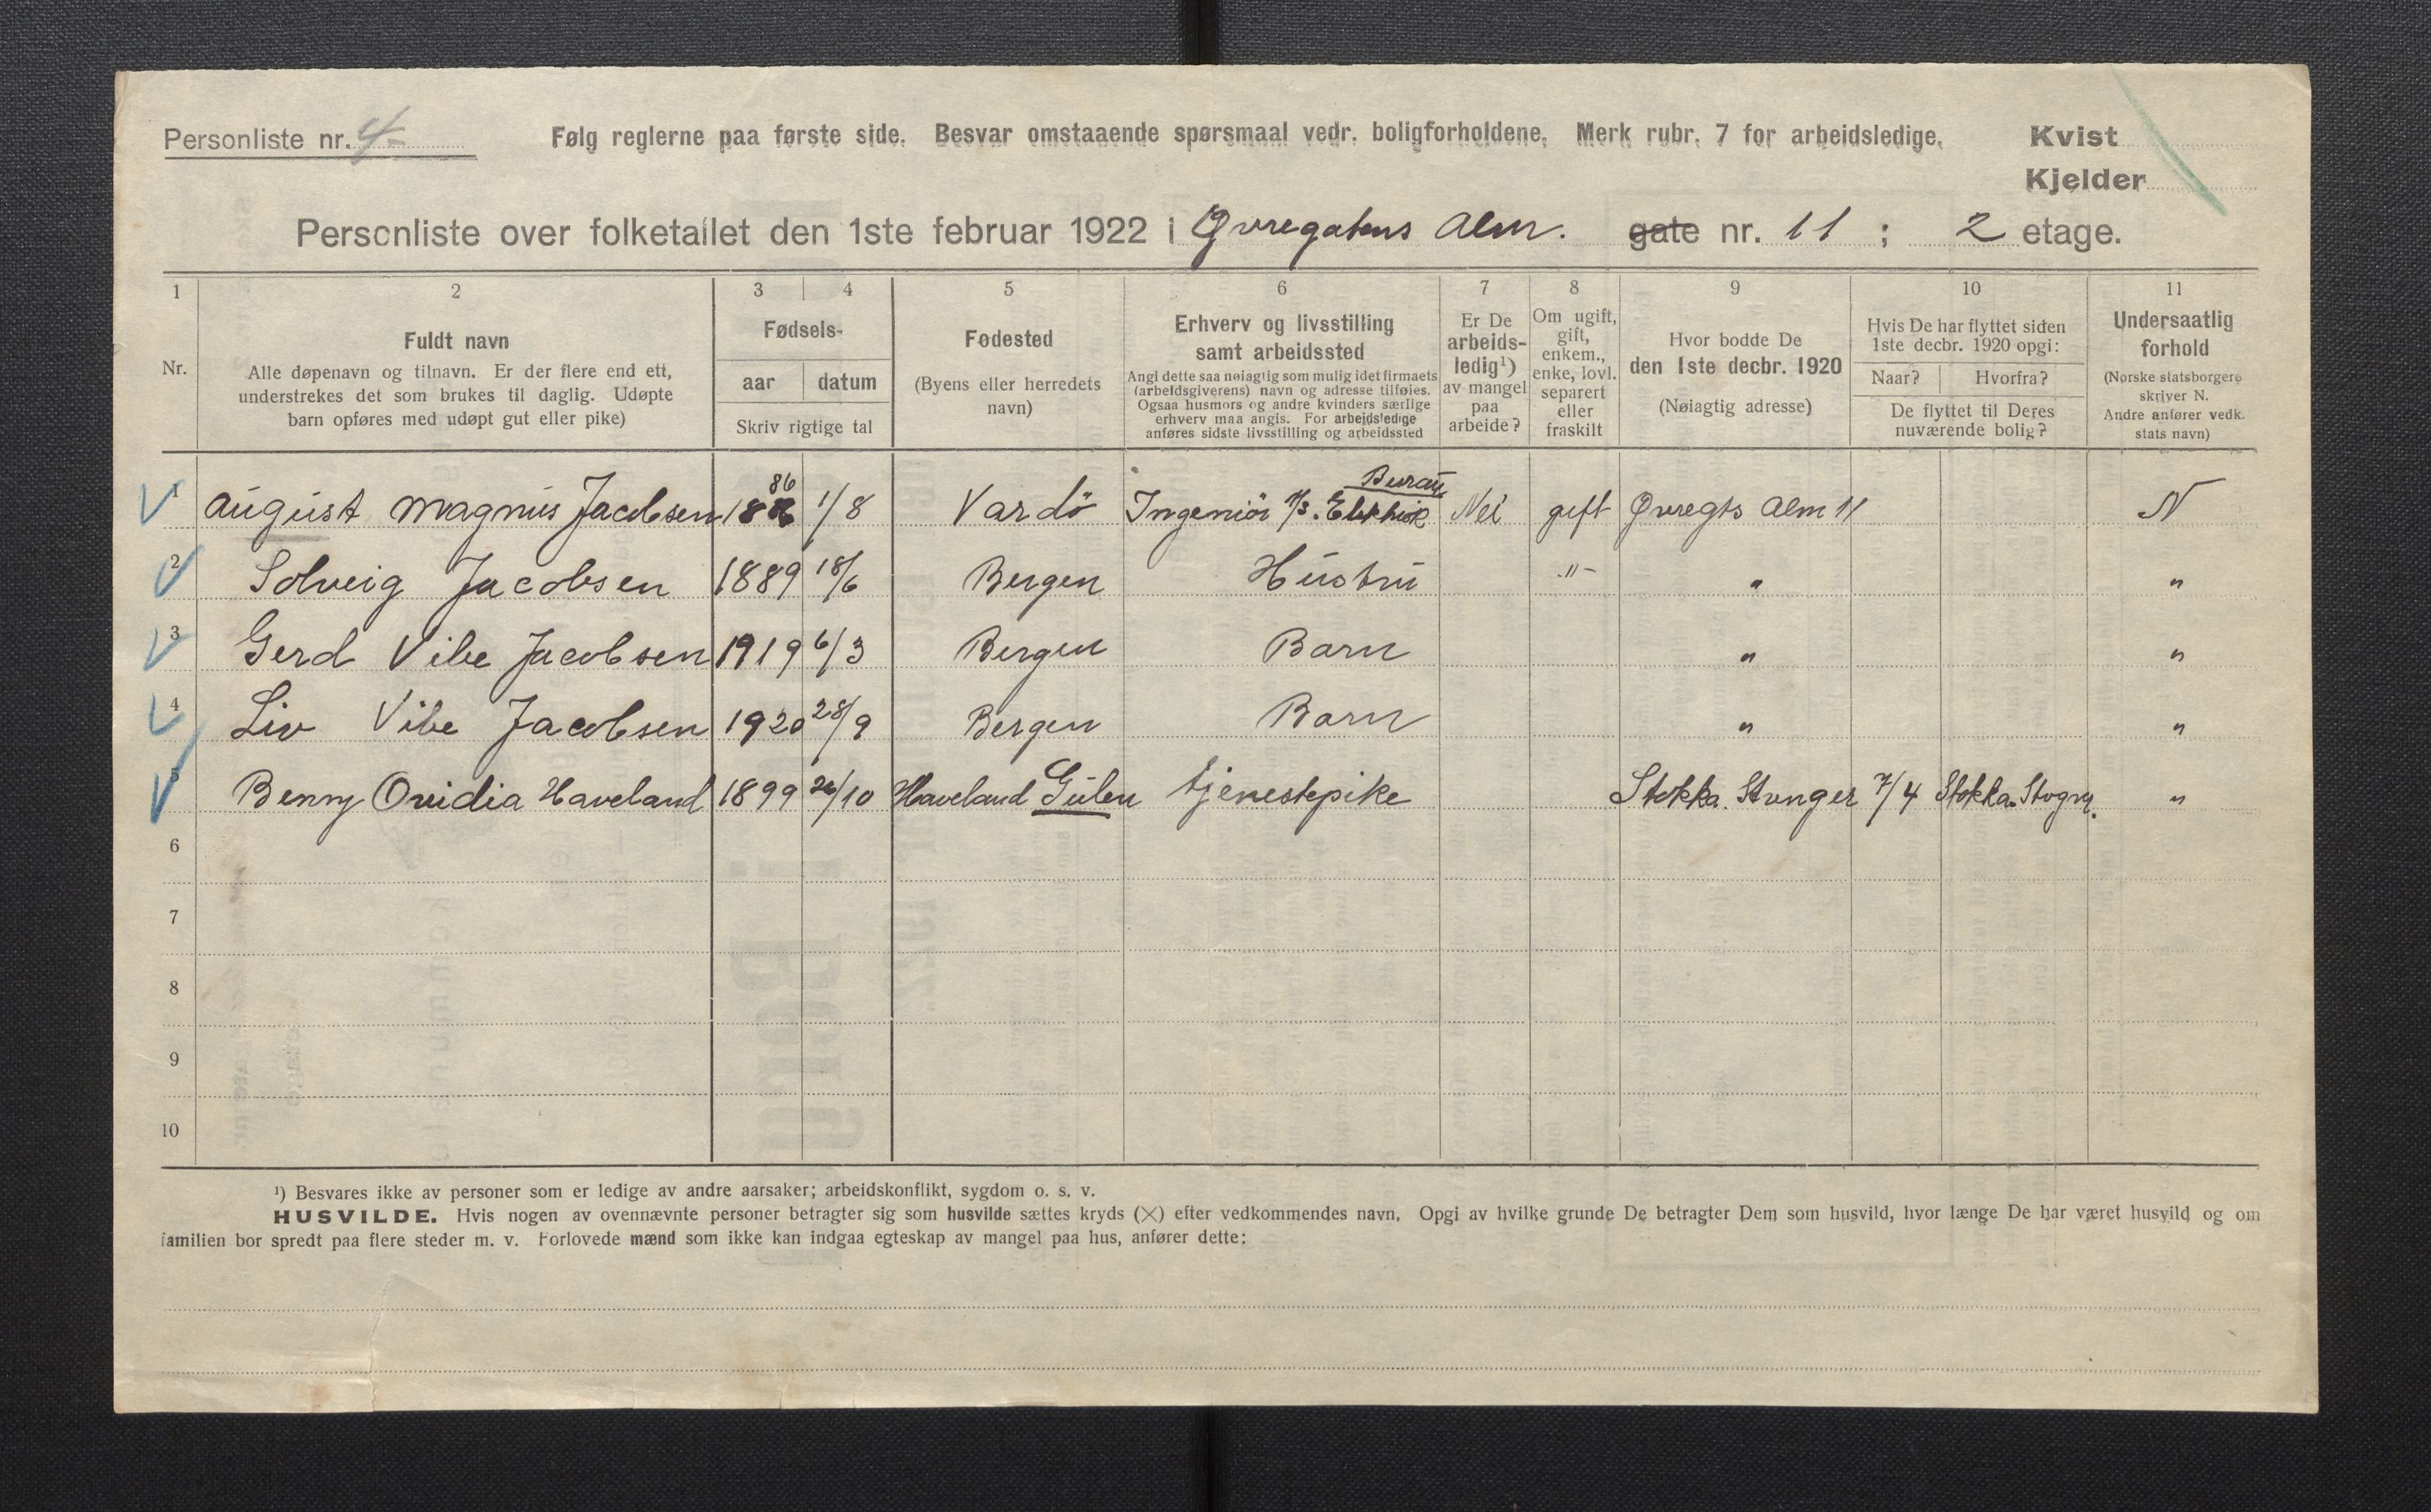 Personliste nr. 4
Følg reglerne paa første side. Besvar omstaaende spørsmaal vedr. boligforholdene. Merk rubr. 7 for arbeidsledige.
Kvist
Kjelder
Personliste over folketallet den 1ste februar 1922 i Øvregatens Alm. gate nr. 11 ; 2 etage.
1 2 3 4 5 6 7 8 9 10 11
Nr.
Fuldt navn
Alle døpenavn og tilnavn. Er der flere end ett,
understrekes det som brukes til daglig. Udøpte
barn opføres med udøpt gut eller pike)
Fødsels-
aar datum
Skriv rigtige tal
Fødested
(Byens eller herredets
navn)
Erhverv og livsstilling
samt arbeidssted
Angi dette saa nøiagtig som mulig idet firmaets
(arbeidsgiverens) navn og adresse tilføies.
Ogsaa husmors og andre kvinders særlige
erhverv maa angis. For arbeidsledige
anføres sidste livsstilling og arbeidssted
Er De
arbeids-
ledig¹)
av mangel
paa
arbeide?
Om ugift,
gift,
enkem.,
enke, lovl.
separert
eller
fraskilt
Hvor bodde De
den 1ste decbr. 1920
(Nøiagtig adresse)
Hvis De har flyttet siden
1ste decbr. 1920 opgi:
Naar? Hvorfra?
De flyttet til Deres
nuværende bolig?
Undersaatlig
forhold
(Norske statsborgere
skriver N.
Andre anfører vedk.
stats navn)
1 August Magnus Jacobsen 1886 1/8 Vardö Ingeniör Elektrisk Bureau Nei gift Øvregts Alm 11 N
2 Solveig Jacobsen 1889 18/6 Bergen Hustru -"- " "
3 Gerd Vibe Jacobsen 1919 6/3 Bergen Barn " "
4 Liv Vibe Jacobsen 1920 28/9 Bergen Barn " "
5 Benny Ovidia Haveland 1899 26/10 Haveland Gulen tjenestepike Stokka. Stvnger 7/4 Stokka. "
6
7
8
9
10
¹) Besvares ikke av personer som er ledige av andre aarsaker; arbeidskonflikt, sygdom o. s. v.
HUSVILDE. Hvis nogen av ovennævnte personer betragter sig som husvilde sættes kryds (×) efter vedkommendes navn. Opgi av hvilke grunde De betragter Dem som husvild, hvor længe De har været husvild og om
familien bor spredt paa flere steder m. v. Forlovede mænd som ikke kan indgaa egteskap av mangel paa hus, anfører dette: